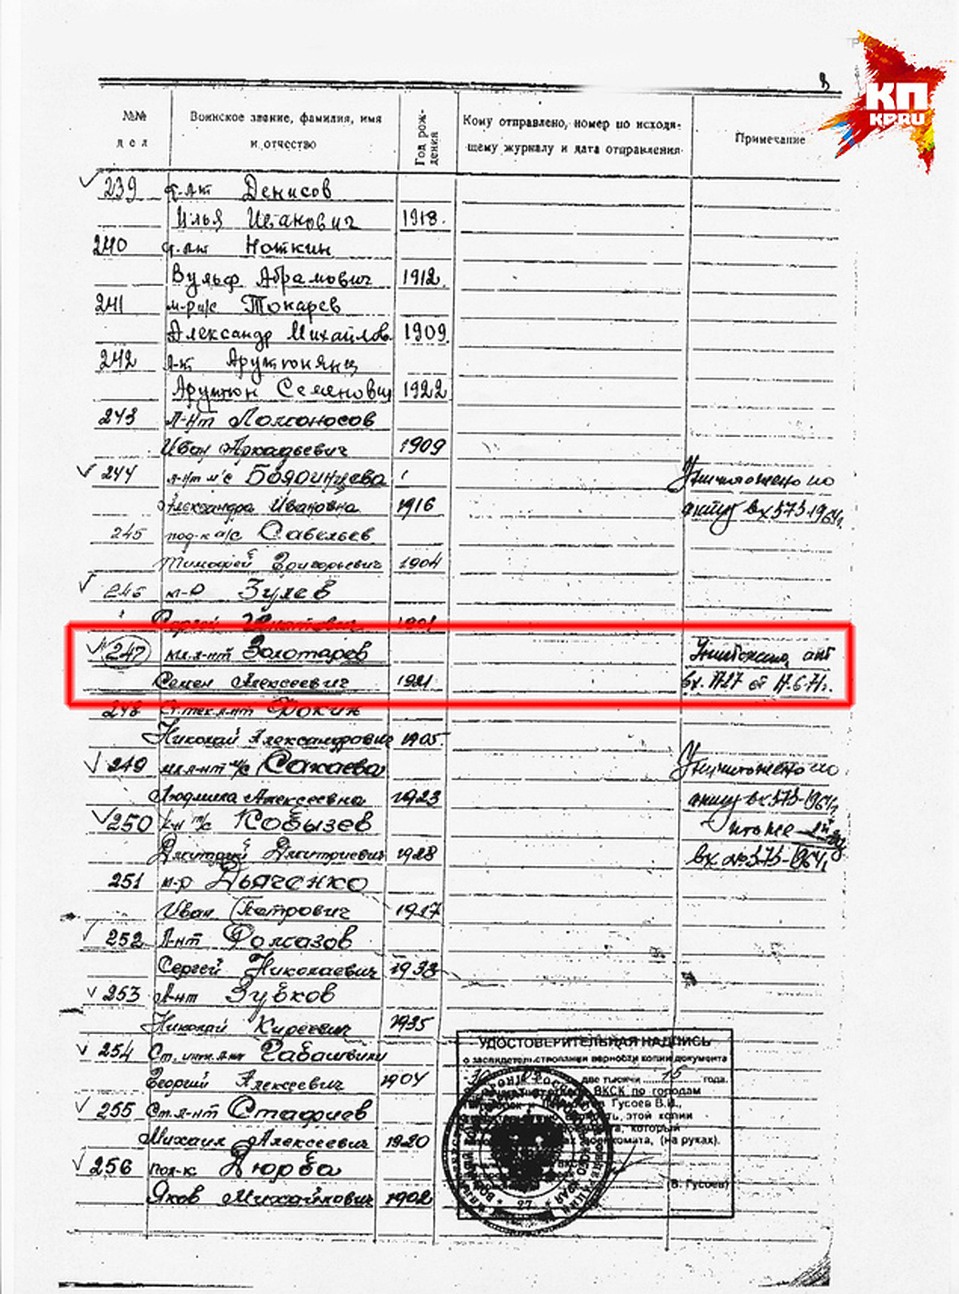 КП
KP.RU
8
№№ дел
Воинское звание, фамилия, имя и отчество
Год рождения
Кому отправлено, номер по исходящему журналу и дата отправления
Примечание
239 Денисов
Илья Иванович 1918.
240 Ноткин
Вульф Абрамович 1912.
241 Токарев
Александр Михайлов. 1909
242 Арутюнянц
Арутюн Семенович 1922
243 Л-нт Ломоносов
Иван Аркадьевич 1909
244 л-нт м/с Бояринцева Уничтожено по
Александра Ивановна 1916 акту вх 573-1964г
245 Савельев
Тимофей Григорьевич 1904
246 м-р Зулев
Сергей
247 мл.л-нт Золотарев Уничтожено акт
Семен Алексеевич 1921 вх. 1727 от 17.6.71г.
248 Ст.тех.л-нт Фокин
Николай Александрович 1905
249 мл.л-нт м/с Сакаева Уничтожено по
Людмила Алексеевна 1923 акту вх 573-1964г
250 Кобызев
Дмитрий Дмитриевич 1928 вх 573-1964
251 м-р Дьяченко
Иван Петрович 1917
252 Л-нт
Сергей Николаевич 1933
253 Л-нт Зубков
Николай Киреевич 1935
254 Ст.
Георгий Алексеевич 1904
255 Ст.л-нт Стафиев
Михаил Алексеевич 1920
256 пол-к Дюрба
Яков Михайлович 1902
УДОСТОВЕРИТЕЛЬНАЯ НАДПИСЬ
о засвидетельствовании верности копии документа
две тысячи 15 года.
ВКСК по городам
Гусоев В.И.
этой копии
который
военкомата, (на руках).
(В. Гусоев)